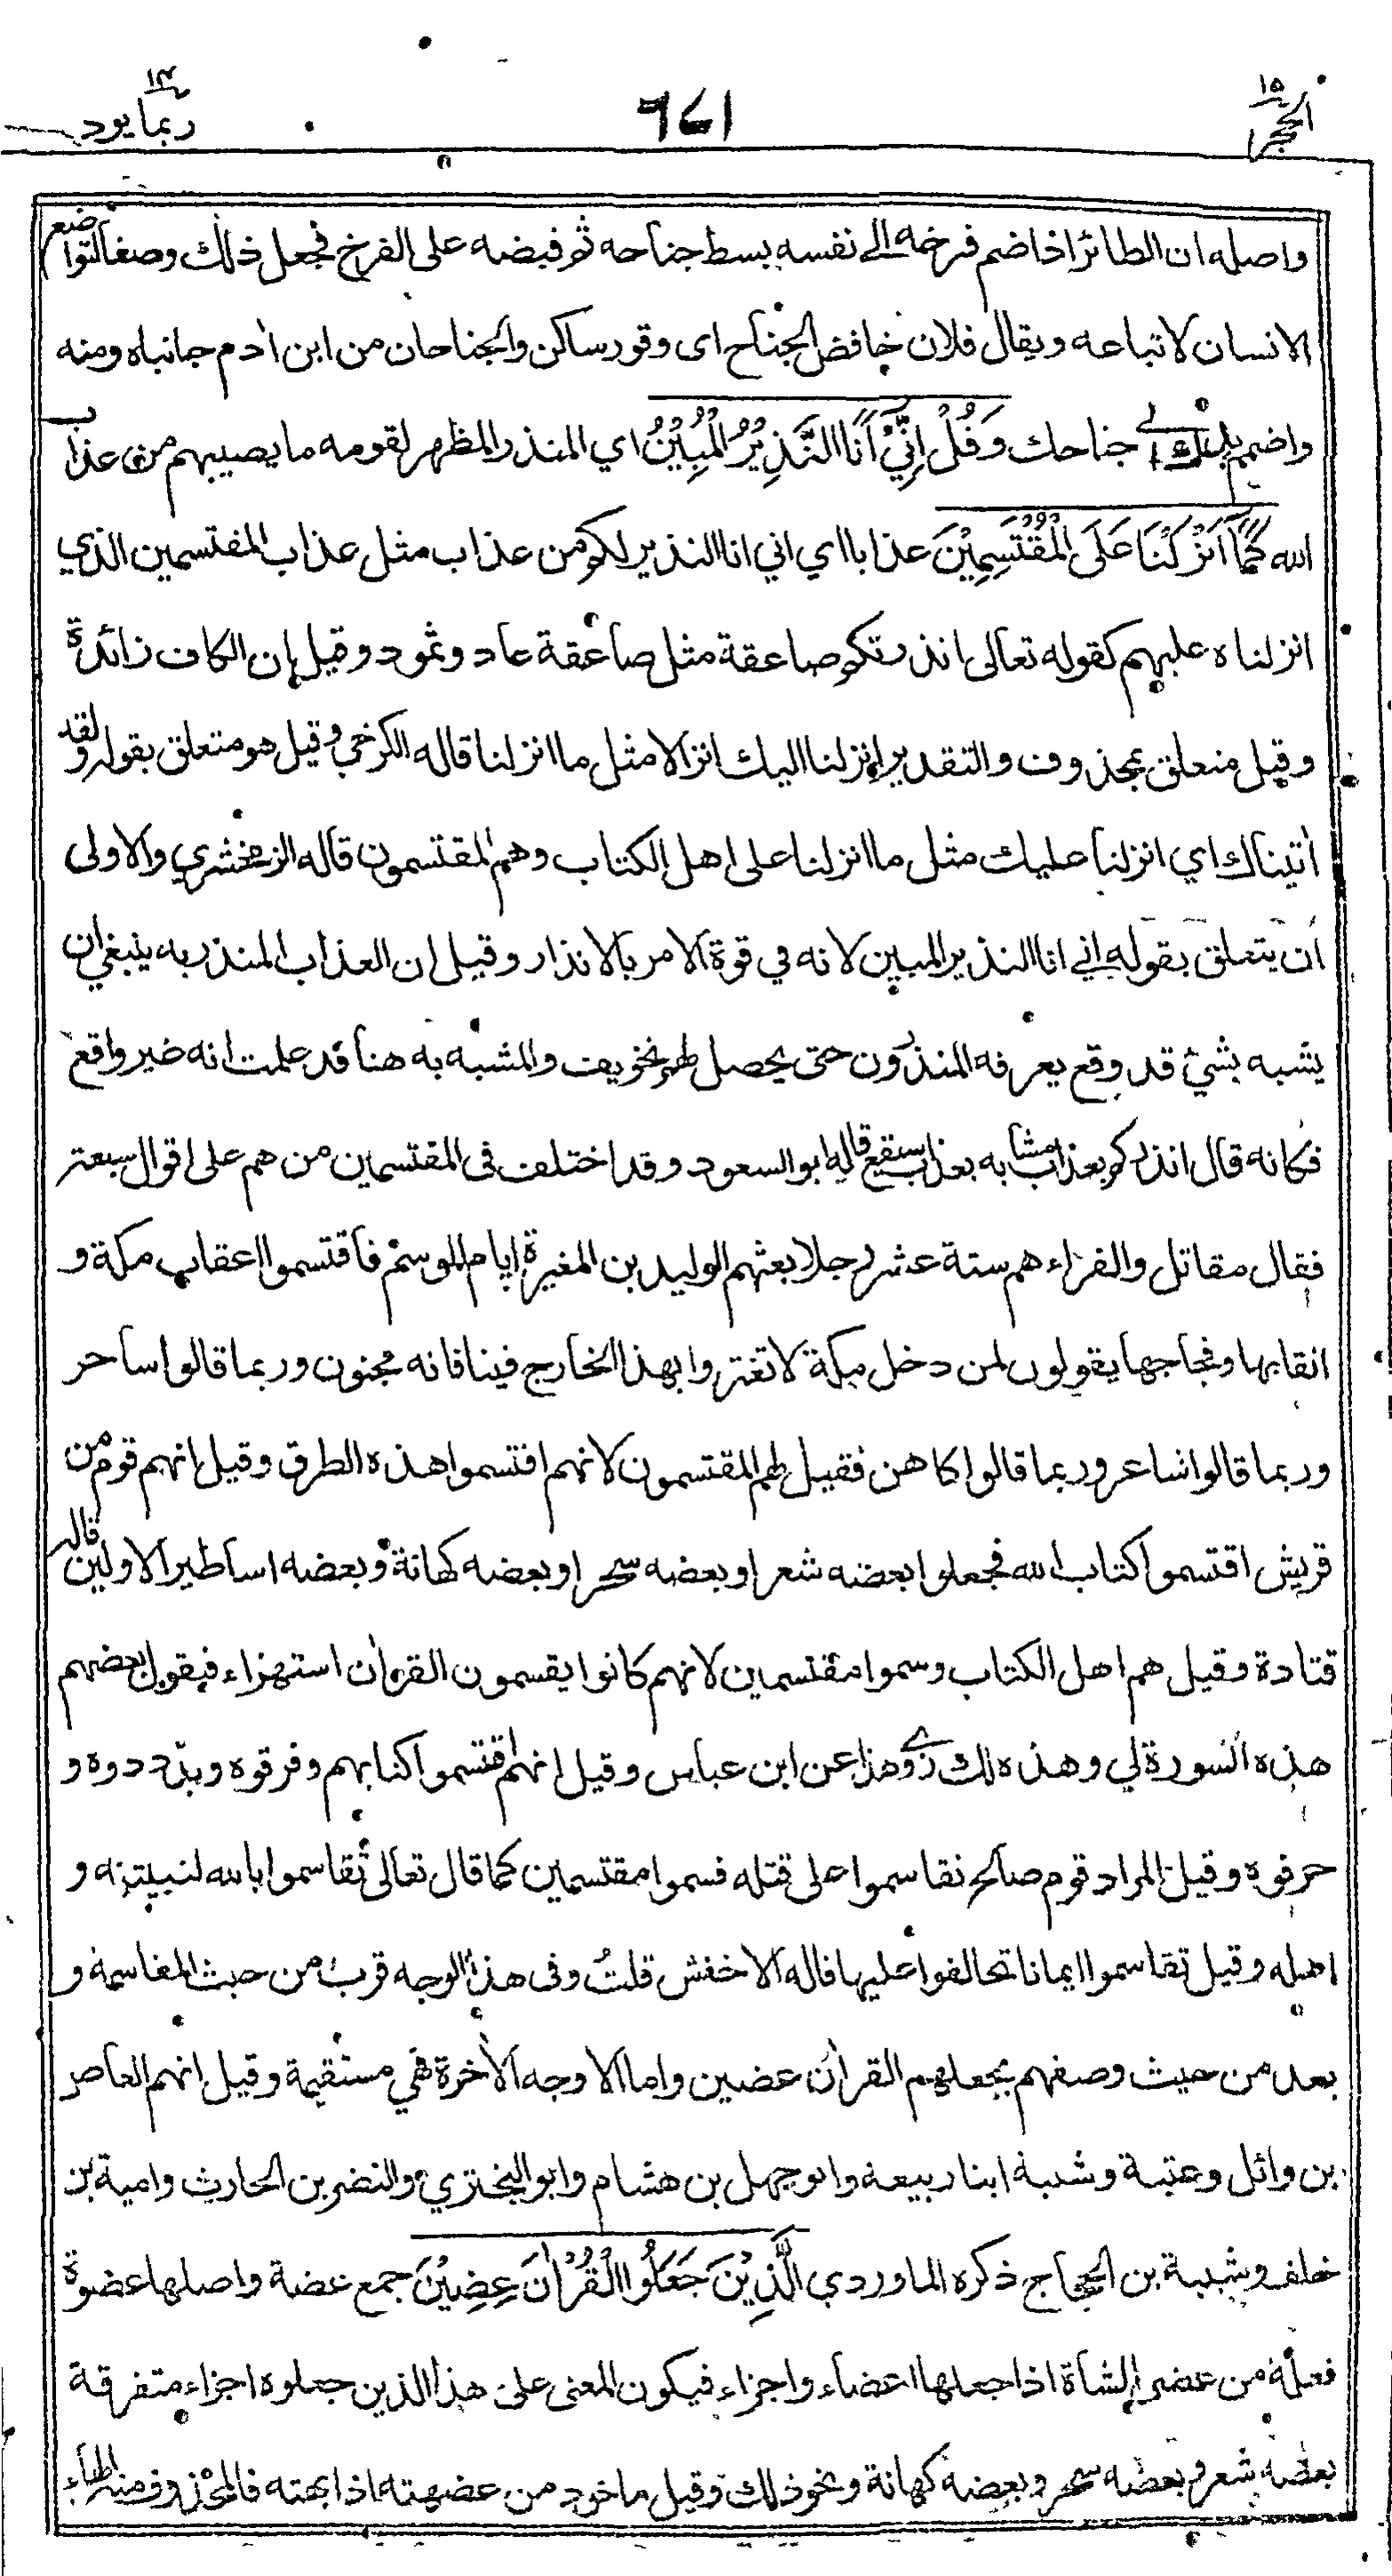 ربما يود ١٤
١٧٦
الحجر ١٥
واصله ان الطائر اذا ضم فرخه الى نفسه بسط جناحه ثم قبضه على الفرخ فجعل ذلك وصفا لتواضع
الانسان لاتباعه ويقال فلان خافض الجناح اى وقور ساكن والجناحان من ابن اٰدم جانباه ومنه
واضمم اليك جناحك وَقُلْ اِنِّيْ اَنَا النَّذِيْرُ الْمُبِيْنُ اي المنذر المظهر لقومه ما يصيبهم من عذاب
الله كَمَا اَنْزَلْنَا عَلَى الْمُقْتَسِمِيْنَ عذابا اي اني انا النذير لكم من عذاب مثل عذاب المقتسمين الذي
انزلناه عليهم كقوله تعالى انذرتكم صاعقة مثل صاعقة عاد وثمود وقيل ان الكاف زائدة
وقيل متعلق بمحذوف والتقدير انزلنا اليك انزالا مثل ما انزلنا قاله الكرخي وقيل هو متعلق بقوله ولقد
اٰتيناك اي انزلنا عليك مثل ما انزلنا على اهل الكتاب وهم المقتسمون قاله الزمخشري والاولى
ان يتعلق بقوله اني انا النذير المبين لانه في قوة الامر بالانذار وقيل ان العذاب المنذر به ينبغي ان
يشبه بشيء قد وقع يعرفه المنذرون حتى يحصل لهم تخويف والمشبه به هنا قد علمت انه غير واقع
فكانه قال انذركم بعذاب مشابه بعذاب سيقع قاله ابو السعود وقد اختلف في المقتسمين من هم على اقوال سبعة
فقال مقاتل والفراء هم ستة عشر رجلا بعثهم الوليد بن المغيرة ايام الموسم فاقتسموا اعقاب مكة و
انقابها وفجاجها يقولون لمن دخل مكة لا تغتروا بهذا الخارج فينا فانه مجنون وربما قالوا ساحر
وربما قالوا شاعر وربما قالوا كاهن فقيل لهم المقتسمون لانهم اقتسموا هذه الطرق وقيل انهم قوم من
قريش اقتسموا كتاب الله فجعلوا بعضه شعرا وبعضه سحرا وبعضه كهانة وبعضه اساطير الاولين قاله
قتادة وقيل هم اهل الكتاب وسموا مقتسمين لانهم كانوا يقسمون القراٰن استهزاء فيقول بعضهم
هذه السورة لي وهذه لك روي هذا عن ابن عباس وقيل انهم اقتسموا كتابهم وفرقوه وبددوه و
حرفوه وقيل المراد قوم صالح تقاسموا على قتله فسموا مقتسمين كما قال تعالى تقاسموا بالله لنبيتنه و
اهله وقيل تقاسموا ايمانا تحالفوا عليها قاله الاخفش قلت وفى هذا الوجه قرب من حيث المقاسمة و
بعد من حيث وصفهم بجعلهم القراٰن عضين واما الاوجه الاخرة فهي مستقيمة وقيل انهم العاص
بن وائل وعتبة وشيبة ابنا ربيعة وابو جهل بن هشام وابو البختري والنضر بن الحارث وامية بن
خلف وشيبة بن الحجاج ذكره الماوردي الَّذِيْنَ جَعَلُوا الْقُرْاٰنَ عِضِيْنَ جمع عضة واصلها عضوة
فعلة من عضى الشاة اذا جعلها اعضاء واجزاء فيكون المعنى على هذا الذين جعلوه اجزاء متفرقة
بعضه شعر وبعضه سحر وبعضه كهانة ونحو ذلك وقيل ماخوذ من عضهته اذا بهته فالمحذوف منه الهاء